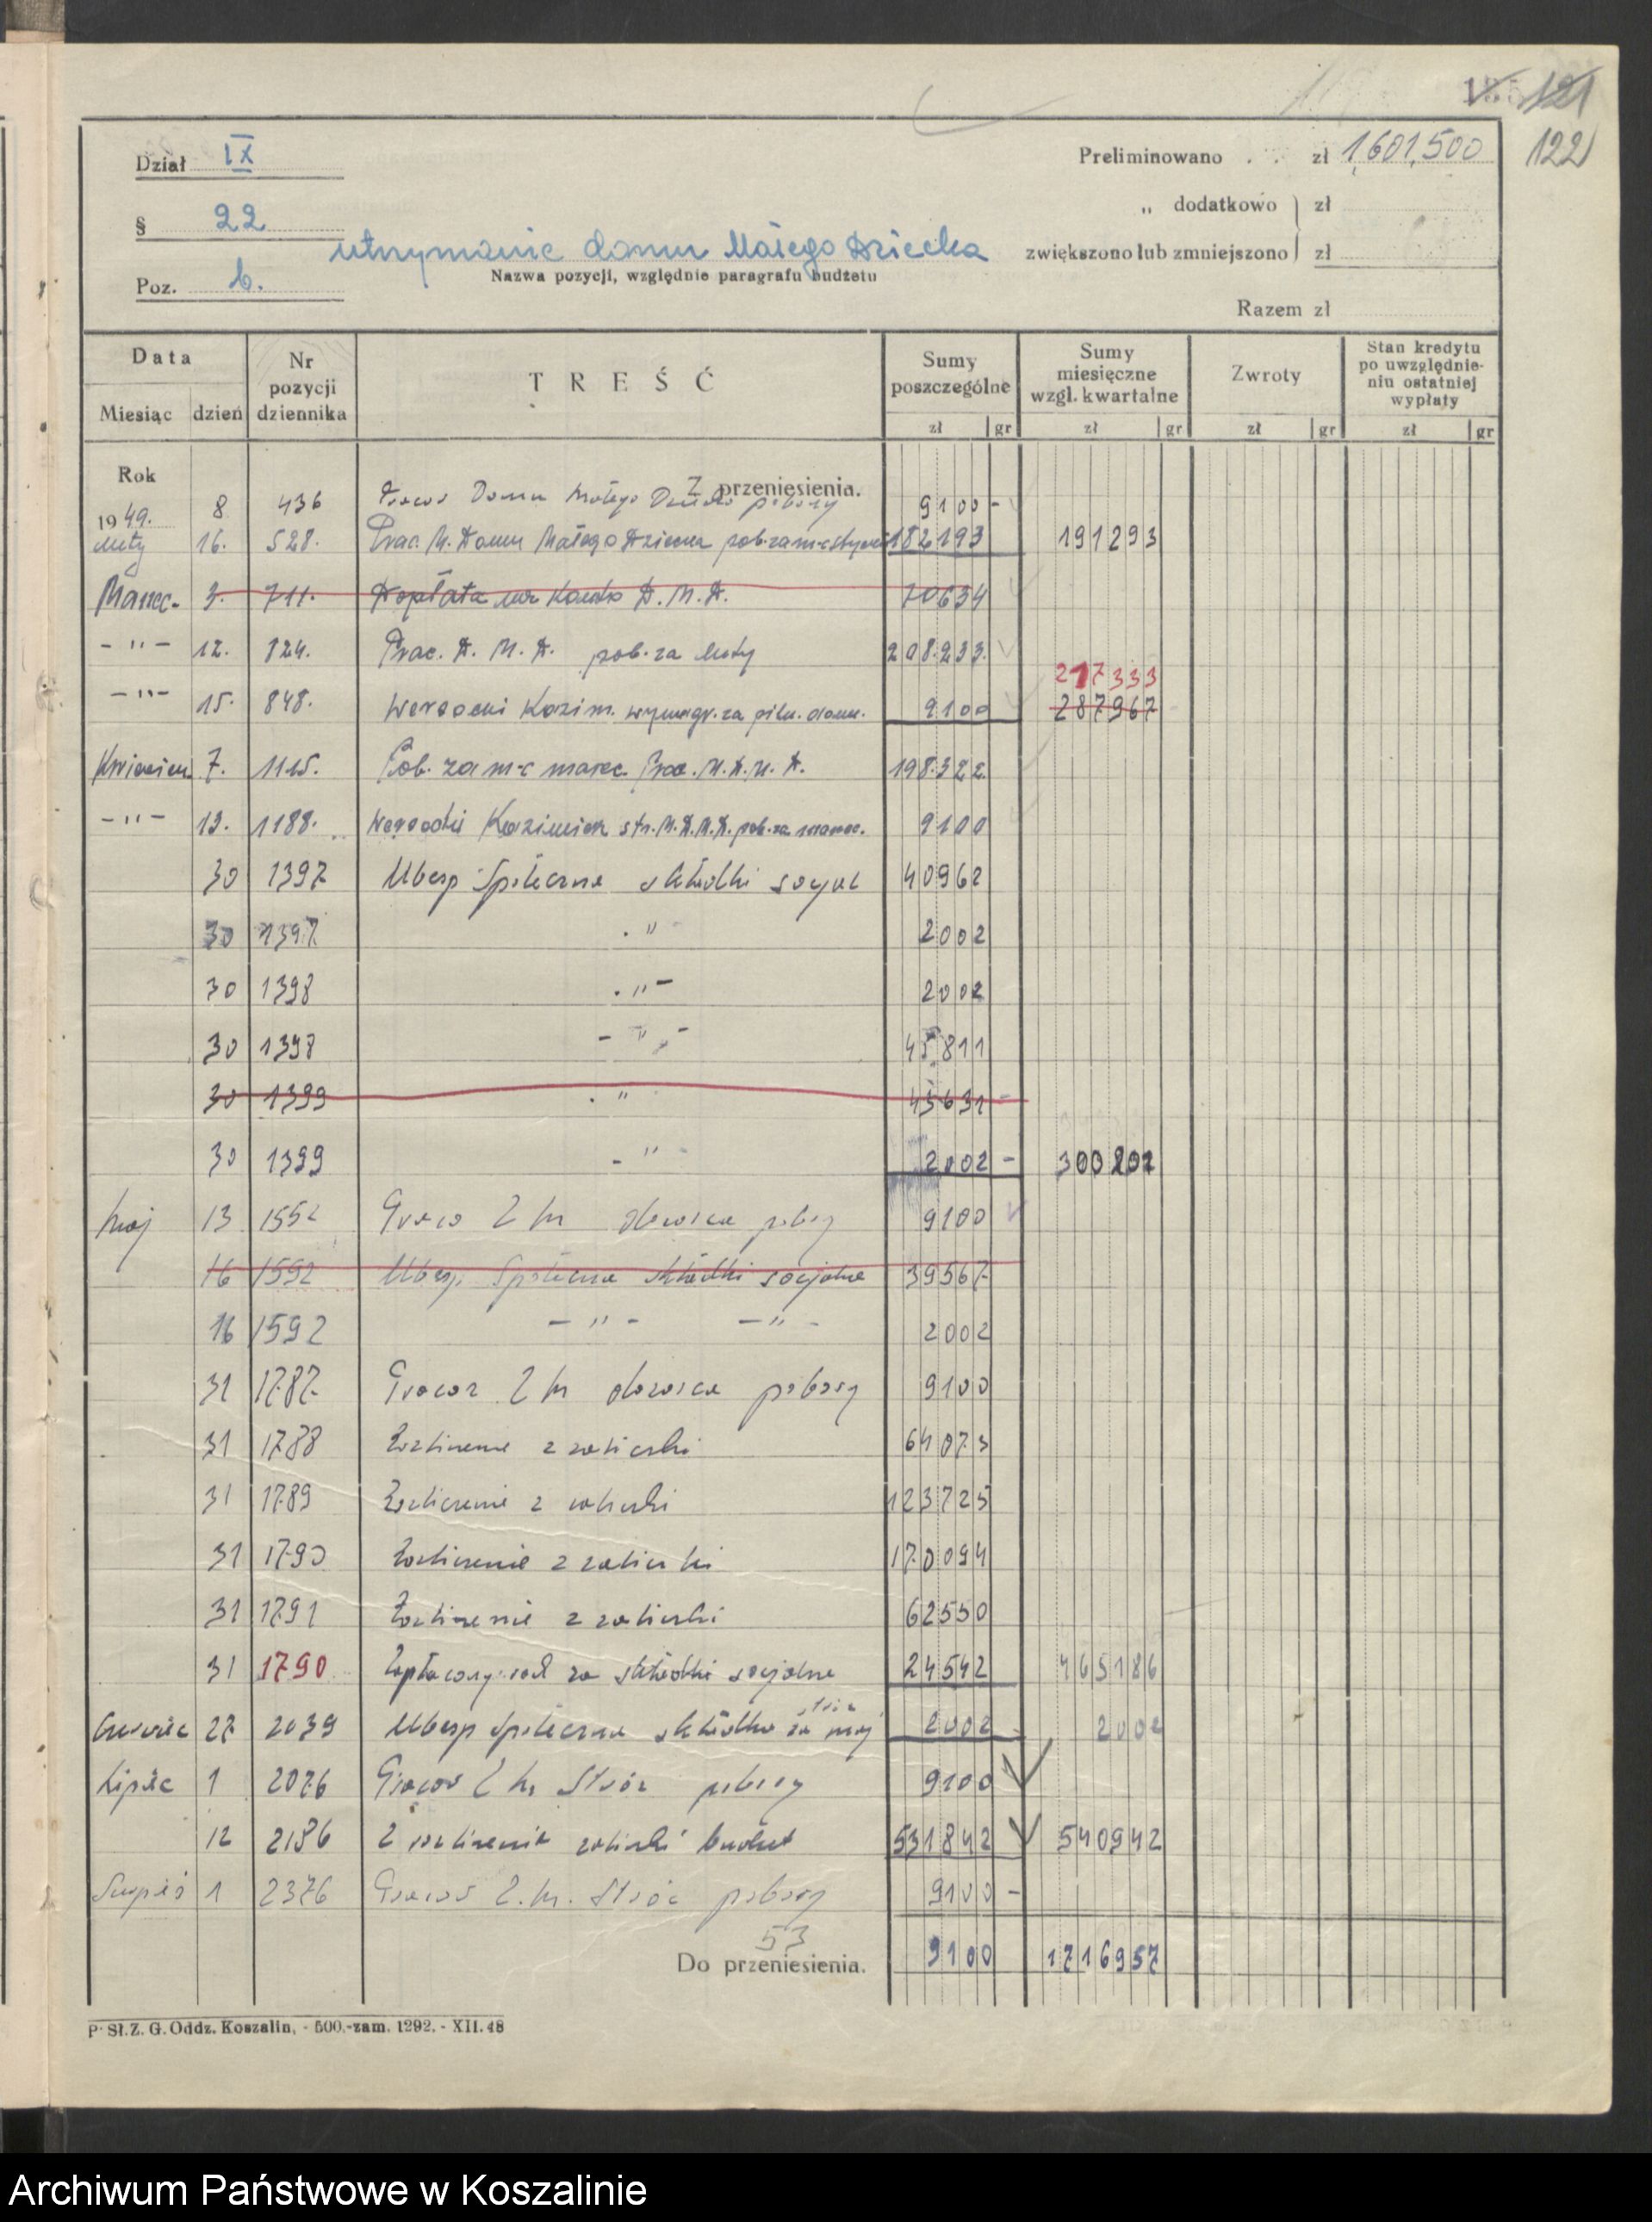 121
122
Dział IX
Preliminowano . . zł 1,601,500
„ dodatkowo zł
§ 22
utrzymanie domu Małego Dziecka
zwiększono lub zmniejszono zł
Nazwa pozycji, względnie paragrafu budżetu
Poz. b.
Razem zł
Data
Miesiąc dzień
Nr pozycji dziennika
TREŚĆ
Sumy poszczególne
Sumy miesięczne wzgl. kwartalne
Zwroty
Stan kredytu po uwzględnieniu ostatniej wypłaty
zł gr zł gr zł gr zł gr
Rok
Z przeniesienia.
1949. 8 436 Domu Małego pobory 9100 -
luty 16. 528. Prac. M. Domu Małego Dziecka pob. za m-c 182193 191293
Marzec 3. 711. Dopłata D. M. D. 70634
- " - 12. 824. Prac. D. M. D. pob. za luty 208233
217333
- " - 15. 848. Kazim. wynagr. za piln. domu. 9100 287967
Kwiecień 7. 1115. Pob. za m-c marzec Prac. M. D. M. D. 198322
- " - 13. 1188. Kazimierz str. M. D. M. D. pob. za marzec. 9100
30 1397 Ubezp Społeczna składki socjal 40962
30 1397 " 2002
30 1398 " - 2002
30 1398 - " - 45811
30 1399 " 45631 -
30 1399 - " - 2002 - 300201
Maj 13 1552 dozorca pobory 9100
16 1592 Ubezp. Społeczna składki socjalne 39567
16 1592 - " - - " - 2002
31 1787 dozorca pobory 9100
31 1788 z zaliczki 64073
31 1789 Rozliczenie z zaliczki 123725
31 1790 Rozliczenie z zaliczki 170094
31 1791 Rozliczenie z zaliczki 62550
31 1790 za składki socjalne 24542 465186
Czerwiec 27 2039 Ubezp Społeczna składka za maj 2002 - 2002
Lipiec 1 2076 Stróż pobory 9100
12 2186 Z rozliczenia zaliczki 531842 540942
Sierpień 1 2376 Stróż pobory 9100 -
53
Do przeniesienia. 9100 1716957
P. Sł. Z. G. Oddz. Koszalin, - 500.-zam. 1292. - XII. 48
Archiwum Państwowe w Koszalinie